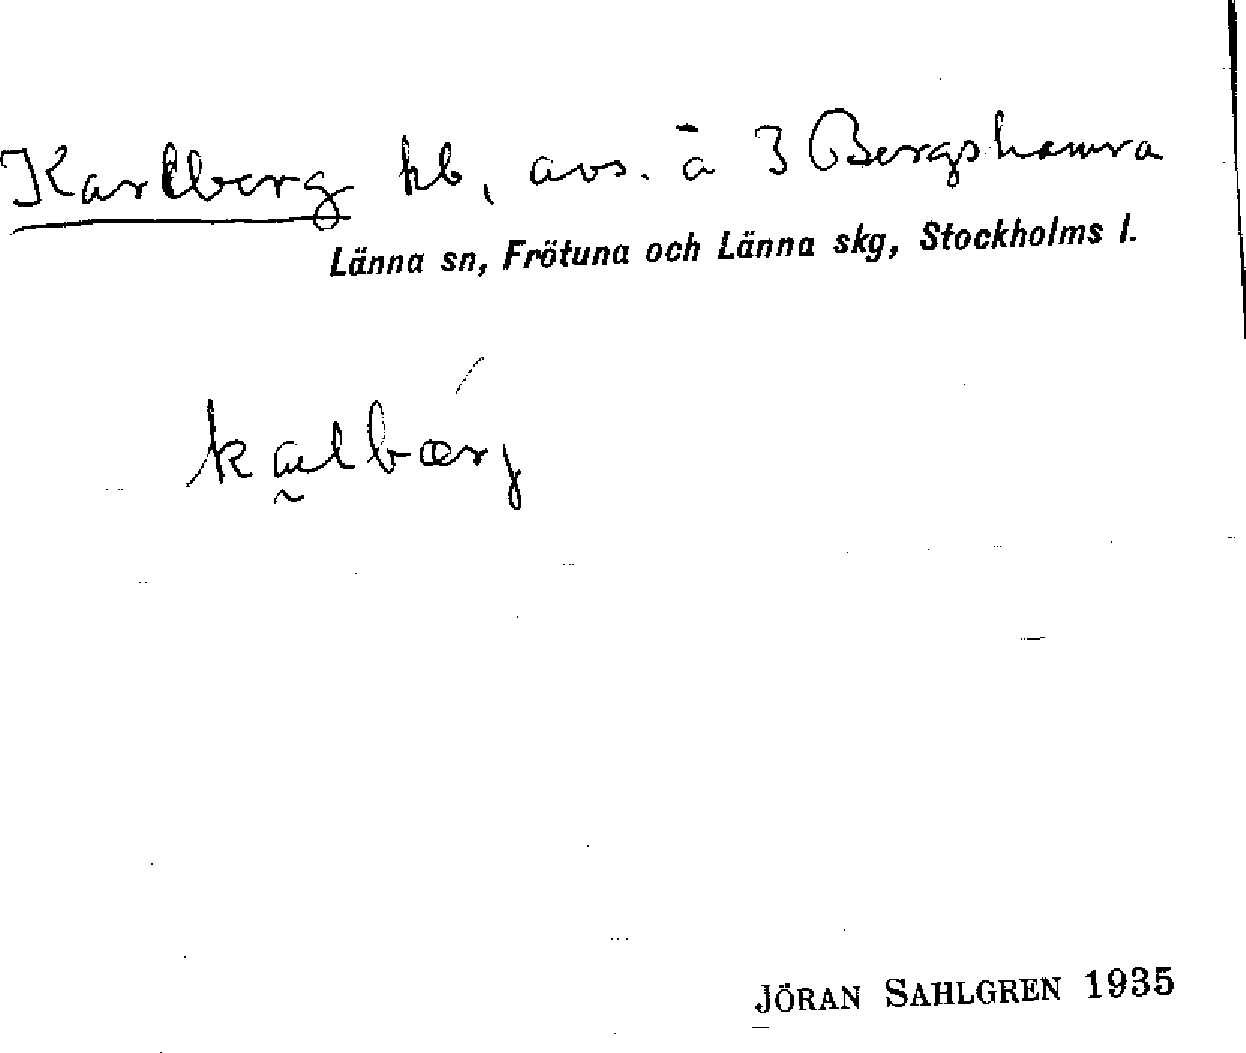 Karlberg hb, avs. å 3 Bergshamra
Länna sn, Frötuna och Länna skg, Stockholms l.
ka̰lbærj
JÖRAN SAHLGREN 1935